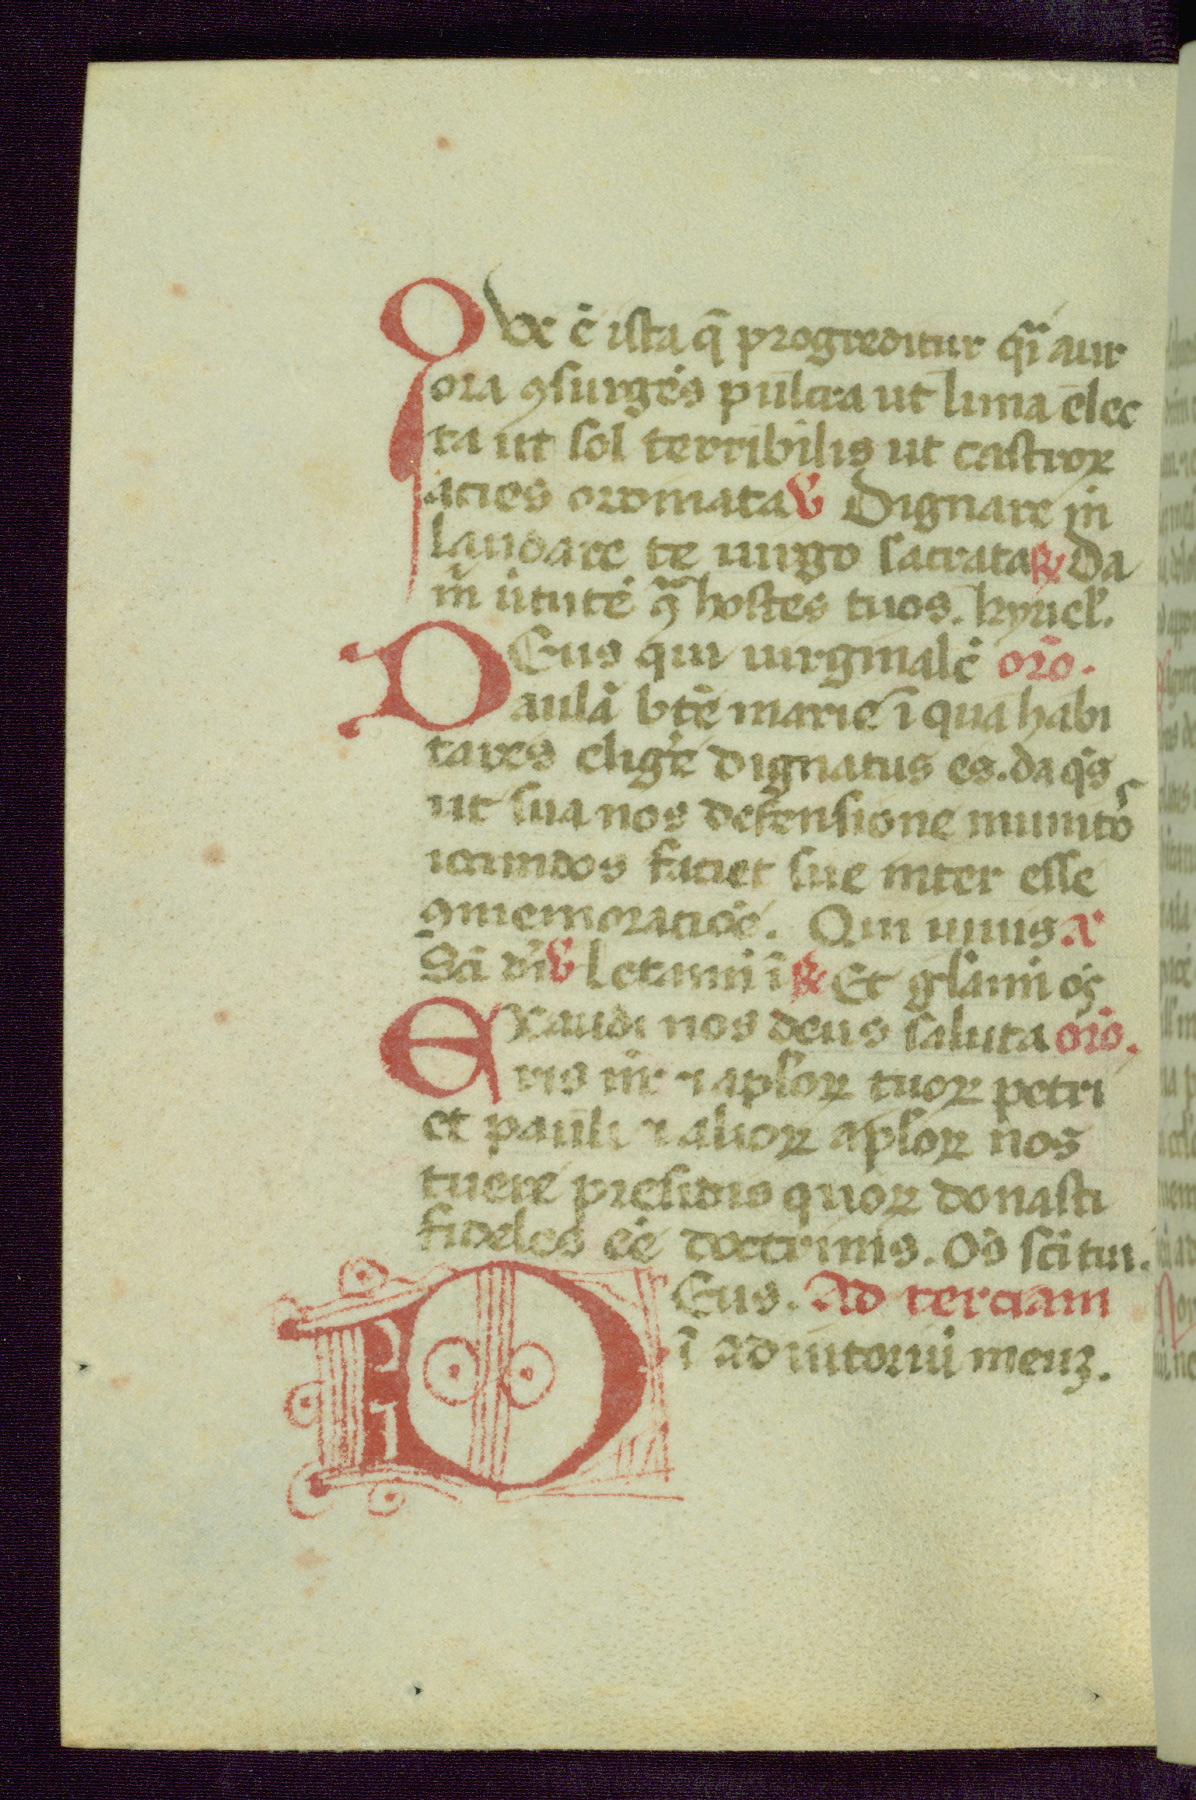 Que ē ista q̄ progreditur q̄i aur
ora ꝯsurgēs pulcra ut luna elec
ta ut sol terribilis ut castroꝝ
acies ordinata ℣ Dignare m̄
laudare te uirgo sacrata ℟ Da
m̄ ūtutē ꝯ̄ hostes tuos. kyriel̄.
Deus qui uirginalē or̄o.
aulā bt̄ē marie ī qua habi
tares eliḡe dignatus es. da q̄s
ut sua nos defensione munitos
iocundos faciet sue inter esse
ꝯmemoratiōē. Qui uiuis a͛
Sc̄i dī ℣ Letamīī ī ℟ Et gl̄amī ōs
Exaudi nos deus saluta or̄o.
ris nr̄ ⁊ apl̄oꝝ tuoꝝ petri
et pauli ⁊ alioꝝ apl̄oꝝ nos
tuere presidiis quoꝝ donasti
fideles eē doctrinis. Ōs sc̄i tui.
Deus. Ad terciam
ī adiutoriū meuꝫ.